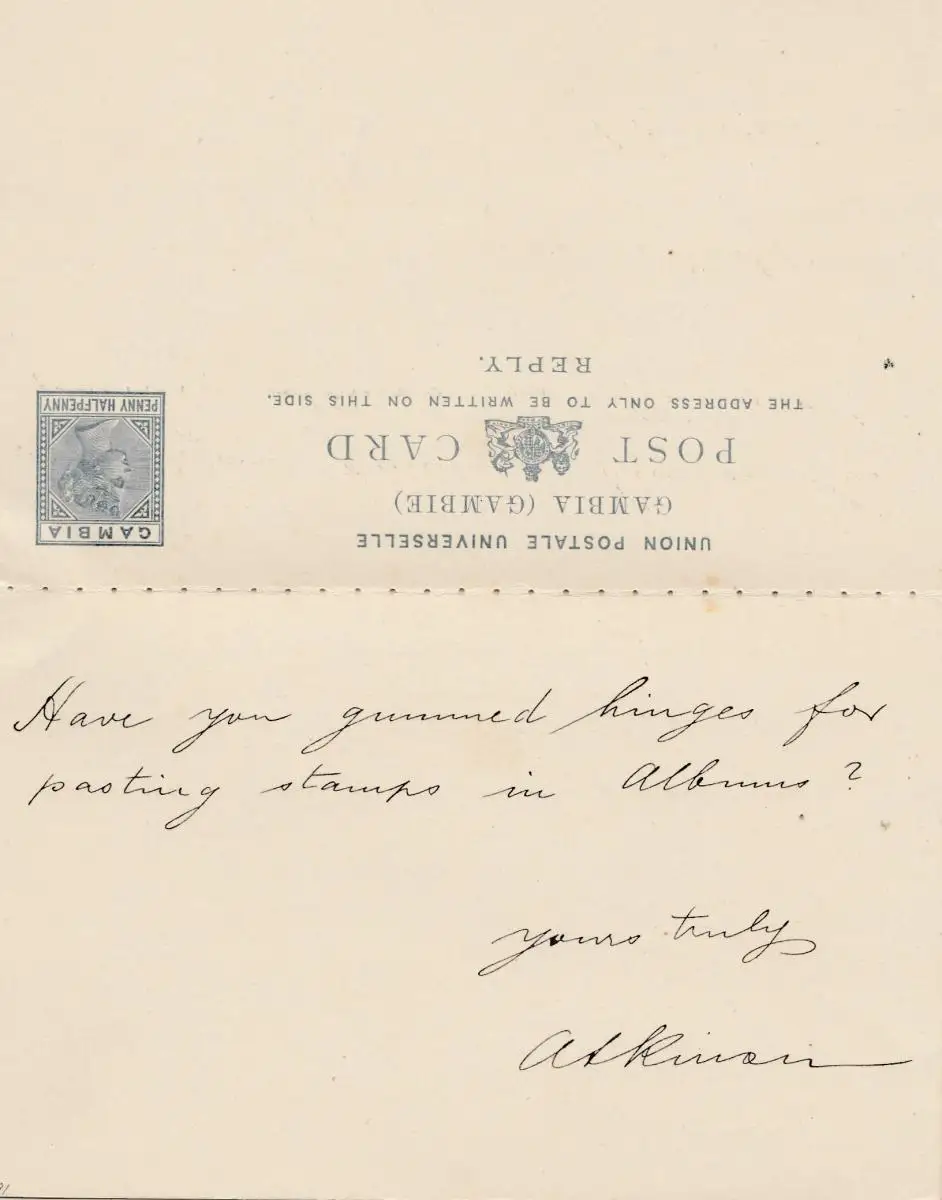 UNION POSTALE UNIVERSELLE
GAMBIA (GAMBIE)
POST CARD
THE ADDRESS ONLY TO BE WRITTEN ON THIS SIDE.
REPLY.
GAMBIA
PENNY HALFPENNY
Have you gummed hinges for
pasting stamps in Albums?
yours truly
Atkinson